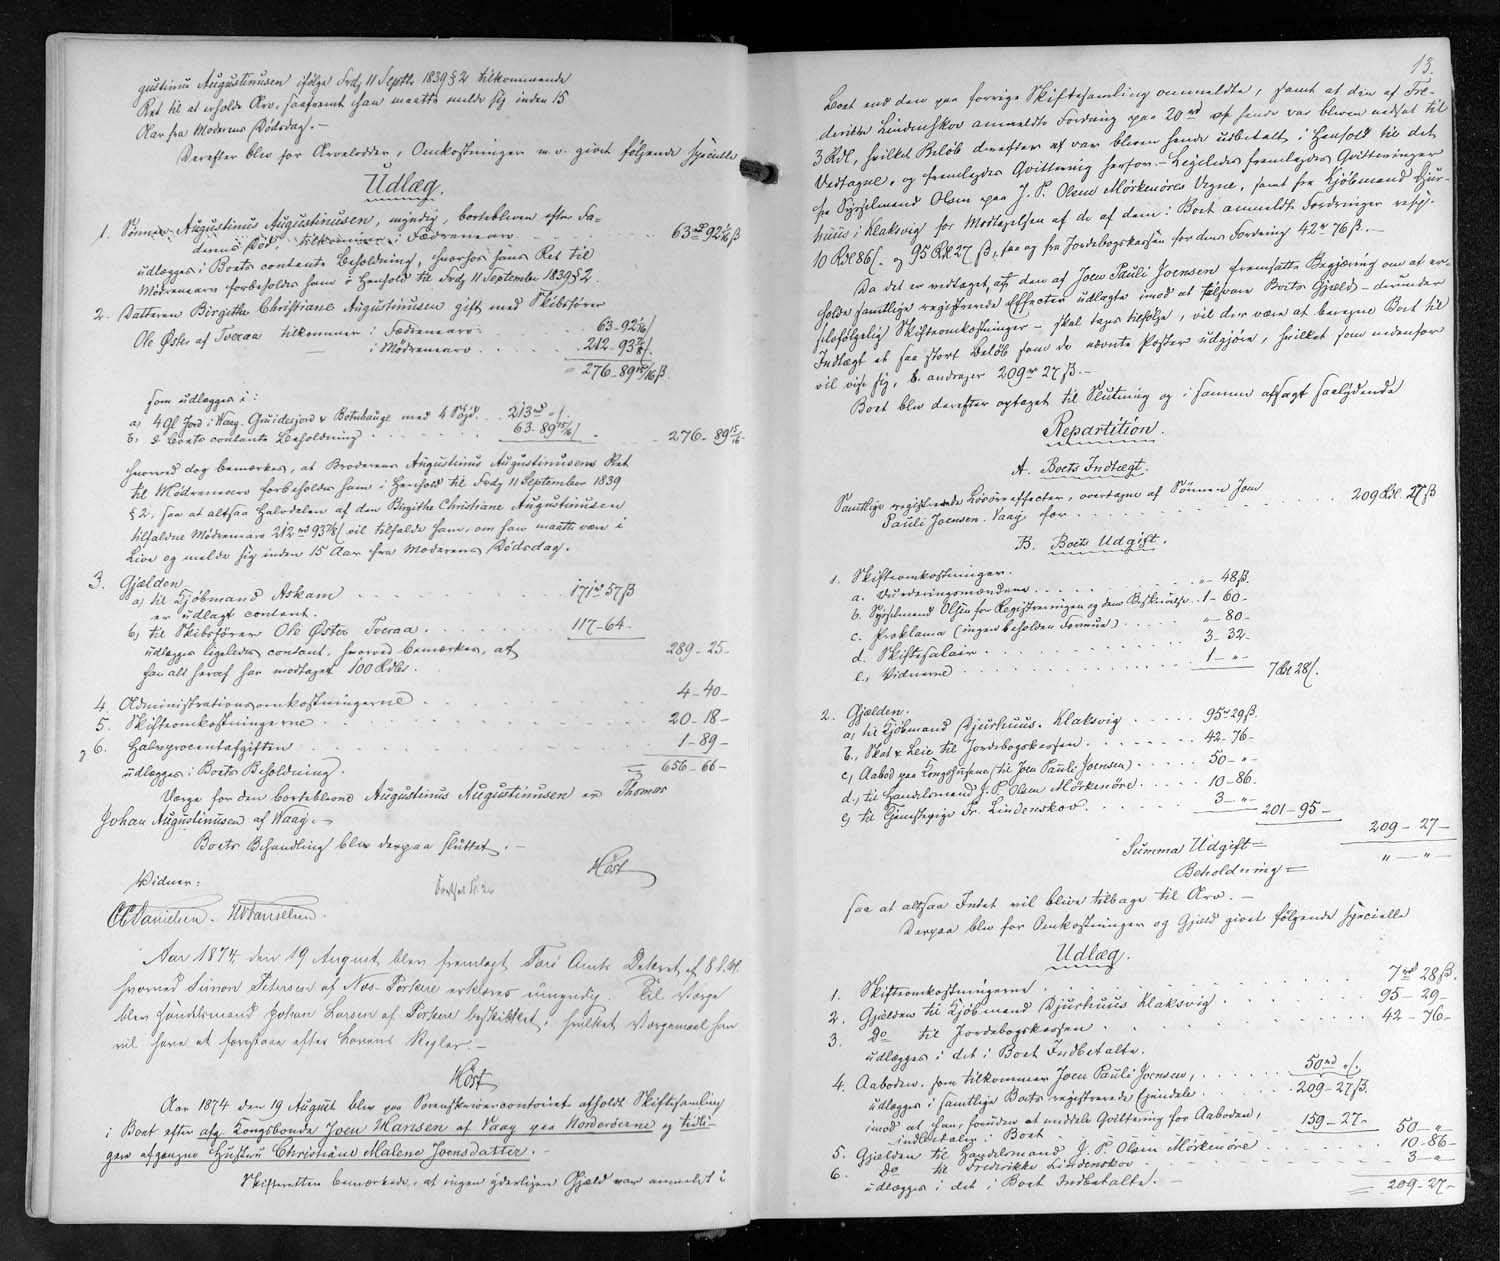 gustinus Augustinusen ifølge Frdg 11 Septbr 1839 § 2 tilkommende
Ret til at erholde Arv, saafremt han maatte melde sig inden 15
Aar fra Moderens Dødsdag. —
Derefter blev for Arvelodder, Omkostninger m.v. givet følgende specielle
Udlæg.
1. Sønnen Augustinus Augustinusen, myndig, bortebleven efter Fa-
derens Død, tilkommer i Fædrenearv 63 rd 92 1/16 ß
udlægges i Boets contante Beholdning, hvorhos hans Ret til
Mødrenearv forbeholdes ham i Henhold til Frdg 11 September 1839 § 2.
2. Datteren Birgithe Christiane Augustinusen gift med Skibsfører
Ole Øster af Tveraa tilkommer i Fædrenearv 63 - 92 1/16 ß
— i Mødrenearv 212 - 93 7/8 ß
= 276 - 89 15/16 ß.
som udlægges i:
a, 4 gl Jord i Waag, Gruidesjord & Botnhauge med 4 213 rd " ß
b, i Boets contante Beholdning 63 - 89 15/16 ß 276 - 89 15/16 -
hvorved dog bemærkes, at Broderens Augustinus Augustinusens Ret
til Mødrenearv forbeholdes ham i Henhold til Frdg 11 September 1839
§ 2, saa at altsaa Halvdelen af den Birgithe Christiane Augustinusen
tilfaldne Mødrenearv 212 rd 93 7/8 ß vil tilfalde ham, om han maatte være i
Live og melde sig inden 15 Aar fra Moderens Dødsdag.
3. Gjælden
a, til Kjøbmand Askam 171 rd 57 ß
er udlagt contant.
b, til Skibsfører Ole Øster Tveraa 117 - 64 -
udlægges ligeledes contant, hvorved bemærkes, at 289 - 25 -
han alt heraf har modtaget 100 Rdlr.
4. Administrationsomkostningerne 4 - 40 -
5. Skifteomkostningerne 20 - 18 -
6. Halvprocentafgiften 1 - 89 -
udlægges i Boets Beholdning. = 656 - 66 -
Værge for den borteblevne Augustinus Augustinusen er Thomas
Johan Augustinusen af Waag. —
Boets Behandling blev derpaa sluttet. —
Høst
Vidner:
Aar 1874 den 19 August blev fremlagt Færø Amts Dekret af 8 d. M.
hvorved Simon Petersen af Næs Porkere erklæres umyndig. Til Værge
blev Handelsmand Johan Larsen af Porkere beskikket, hvilket Værgemaal han
vil have at forestaae efter Lovens Regler. —
Høst
Aar 1874 den 19 August blev paa Sorenskrivercontoiret afholdt Skiftesamling
i Boet efter afg. Kongsbonde Joen Hansen af Vaag paa Norderøerne og tidli-
gere afgangne Hustru Christiane Malene Joensdatter. —
Skifteretten bemærkede, at ingen yderligere Gjæld var anmeldt i
13.
Boet end den paa forrige Skiftesamling ommeldte, samt at den af Fre-
derikke Lindenskov anmeldte Fordring paa 20 rd af hende var bleven nedsat til
3 Rdl, hvilket Beløb derefter af var bleven hende udbetalt i Henhold til det
Vedtagne, og fremlagdes Qvittering herfor. — Ligeledes fremlagdes Qvitteringer
fra Sysselmand Olsen paa J. P. Olsen Mörkenöres Vegne, samt fra Kjöbmand Djur-
huus i Klaksvig for Modtagelsen af de af dem i Boet anmeldte Fordringer resp.
10 Rdl 86 ß og 95 Rdl 27 ß, saa og fra Jordebogskassen for dens Fordring 42 rd 76 ß. —
Da det er vedtaget, at den af Joen Pauli Joensen fremsatte Begjæring om at er-
holde samtlige registrerede Effecter udlagte imod at tilsvare Boets Gjæld — derunder
selvfølgelig Skifteomkostninger — skal tages tilfølge, vil der være at beregne Boet til
Indtægt et saa stort Beløb som de nævnte Poster udgjøre, hvilket som nedenfor
vil vise sig, andrager 209 rd 27 ß. —
Boet blev derefter optaget til Slutning og i samme afsagt saalydende
Repartition.
A. Boets Indtægt.
Samtlige registrerede Løsøreeffecter, overtagne af Sønnen Joen
Pauli Joensen. Vaag for 209 Rdl. 27 ß
B. Boets Udgift.
1. Skifteomkostninger.
a. Vurderingsmændene " - 48 ß.
b. Sysselmand Olsen for Registreringen og dens Beskrivelse 1 - 60 -
c. Proklama (ingen beholden Formue) " - 80 -
d. Skiftesalair 3 - 32 -
e., Vidnerne 1 - " - 7 Rdl 28 ß.
2. Gjælden.
a, til Kjøbmand Djurhuus. Klaksvig 95 rd 29 ß.
b., Skat & Leie til Jordebogskassen 42 - 76 -
c, Aabod paa Kongshusene (til Joen Pauli Joensen) 50 - " -
d., til Handelsmand J. P. Olsen Mörkenöre 10 - 86.
e, til Tjenestepige Fr. Lindenskov 3 - " - 201 - 95 -
Summa Udgift = 209 - 27 -
Beholdning = " — " -
saa at altsaa Intet vil blive tilbage til Arv. —
Derpaa blev for Omkostninger og Gjæld givet følgende specielle
Udlæg.
1. Skifteomkostningerne 7 rd 28 ß.
2. Gjælden til Kjøbmand Djurhuus Klaksvig 95 - 29 -
3. Do til Jordebogskassen 42 - 76 -
udlægges i det i Boet Indbetalte.
4. Aaboden, som tilkommer Joen Pauli Joensen, 50 rd " ß.
udlægges i samtlige Boets registrerede Ejendele 209 - 27 ß.
imod at han, foruden at meddele Qvittering for Aaboden,
indbetaler i Boet 159 - 27 - 50 - "
5. Gjælden til Handelsmand J. P. Olsen Mörkenöre 10 - 86 -
6. Do til Frederikke Lindenskov 3 - "
udlægges i det i Boet Indbetalte. — = 209 - 27 -